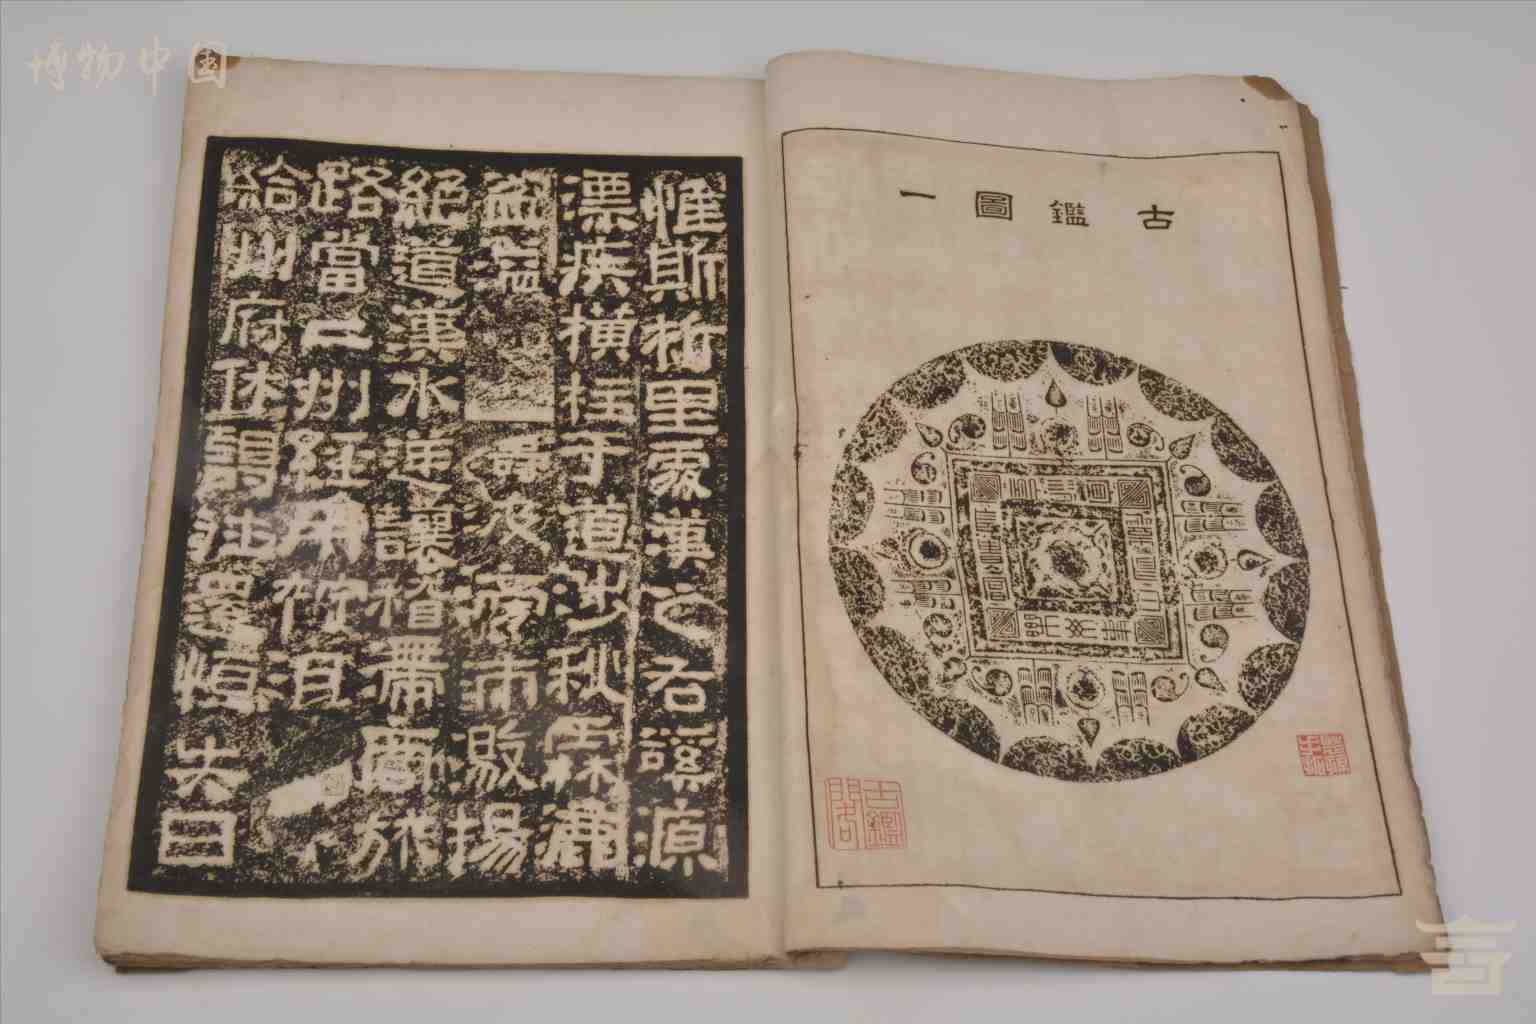 博物中国
古鑑圖一
古鑑閣
惟斯析里處漢之右谿源
漂疾橫柱于道涉秋霖漉
盆溢濤波滂沛激揚
絕道漢水逆讓稽滯商旅
路當二州經用柠沮
給州府休謁往還恒失日